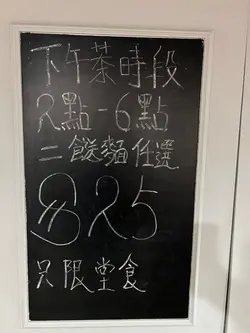 下午茶時段
2點-6點
二餸麵任選
$25
只限堂食